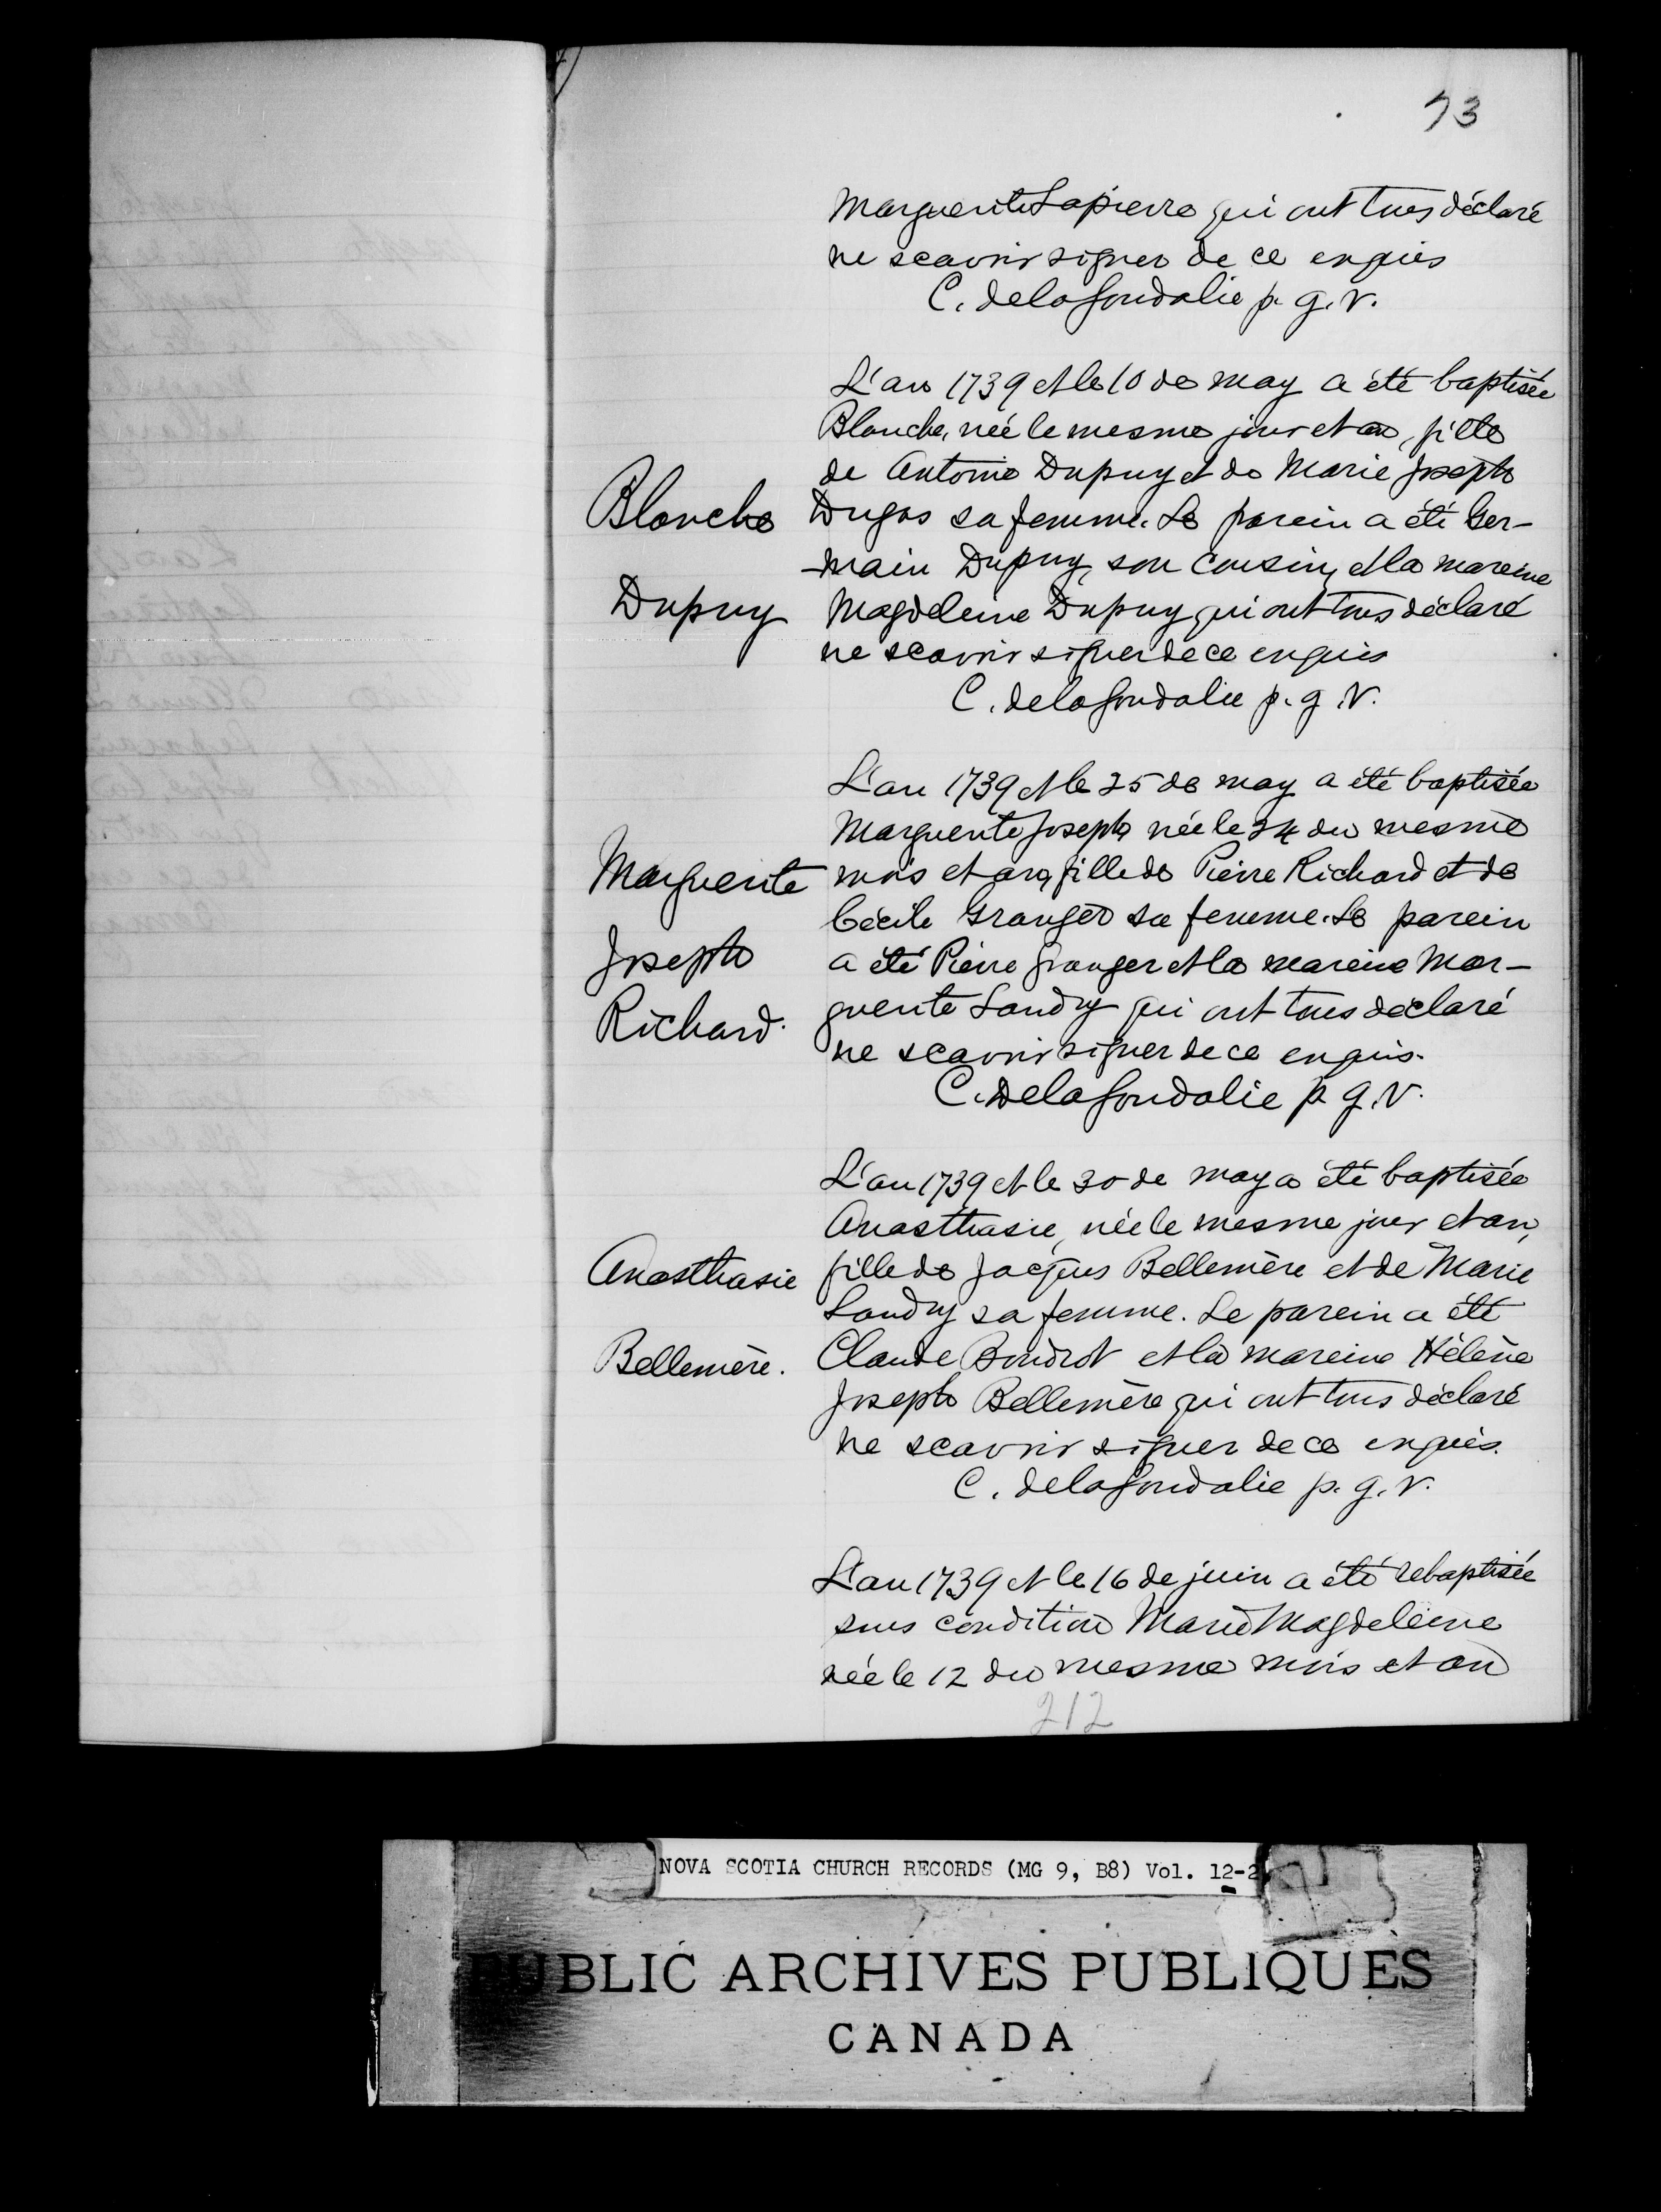 73
Marguerite Lapierre qui ont tous déclaré
ne scavoir signer de ce enquis
C. delagoudalie p. g. v.
L'an 1739 et le 10 de may a été baptisée
Blanche, née le mesme jour et an, fille
de Antoine Dupuy et de Marie Joseph
Blanche
Dugas sa femme. Le parein a été Ger-
-main Dupuy, son cousin, et la mareine
Dupuy
Magdeleine Dupuy qui ont tous déclaré
ne scavoir signer de ce enquis
C. delagoudalie p. g. v.
L'an 1739 et le 25 de may a été baptisée
Marguerite Joseph née le 24 du mesme
Marguerite
mois et an, fille de Pierre Richard et de
Cécile Granger sa femme. Le parein
Joseph
a été Pierre Granger et la mareine Mar-
Richard.
guerite Landry qui ont tous déclaré
ne scavoir signer de ce enquis.
C. Delagoudalie p. g. v.
L'an 1739 et le 30 de may a été baptisée
Anasthasie, née le mesme jour et an,
Anasthasie
fille de Jacques Bellemère et de Marie
Landry sa femme. Le parein a été
Bellemère.
Claude Boudrot et la mareine Hélène
Joseph Bellemère qui ont tous déclaré
ne scavoir signer de ce enquis.
C. delagoudalie p. g. v.
L'an 1739 et le 16 de juin a été rebaptisée
sous condition Marie Magdeleine
née le 12 du mesme mois et an
212
NOVA SCOTIA CHURCH RECORDS (MG 9, B8) Vol. 12-2
PUBLIC ARCHIVES PUBLIQUES
CANADA